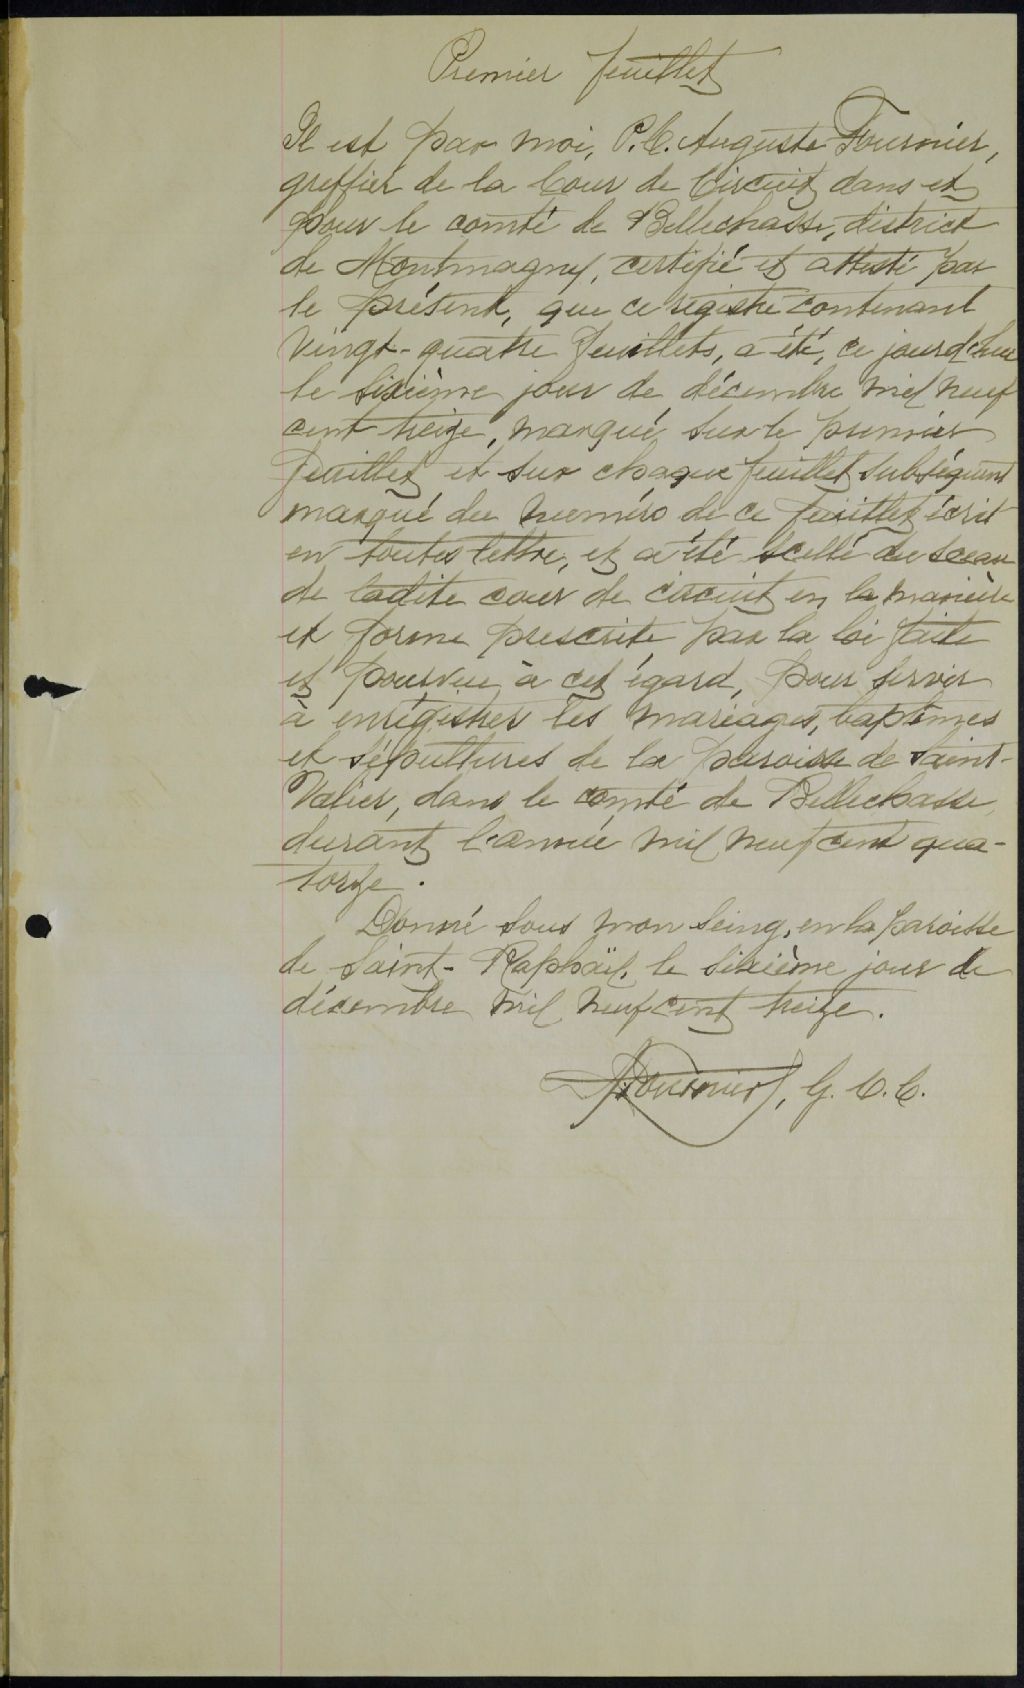 Premier feuillet
Il est par moi, P.C. Auguste Fournier,
greffier de la Cour de Circuit dans et
pour le comté de Bellechasse, district
de Montmagny, certifié et attesté par
le présent, que ce régistre contenant
vingt-quatre feuillets, a été, ce jourd'hui
le sixième jour de décembre mil neuf
cent treize, marqué sur le premier
feuillet et sur chaque feuillet subséquent
marqué du numéro de ce feuillet écrit
en toutes lettre, et a été scellé du sceau
de ladite cour de circuit en la manière
et forme prescrite par la loi faite
et pourvue à cet égard, pour servir
à enrégistrer les mariages, baptêmes
et sépultures de la paroisse de Saint-
Valier, dans le comté de Bellechasse,
durant l'année mil neuf cent qua-
torze.
Donné sous mon seing, en la paroisse
de Saint-Raphaël, le sixième jour de
décembre mil neuf cent treize.
Fournier, G. C. C.